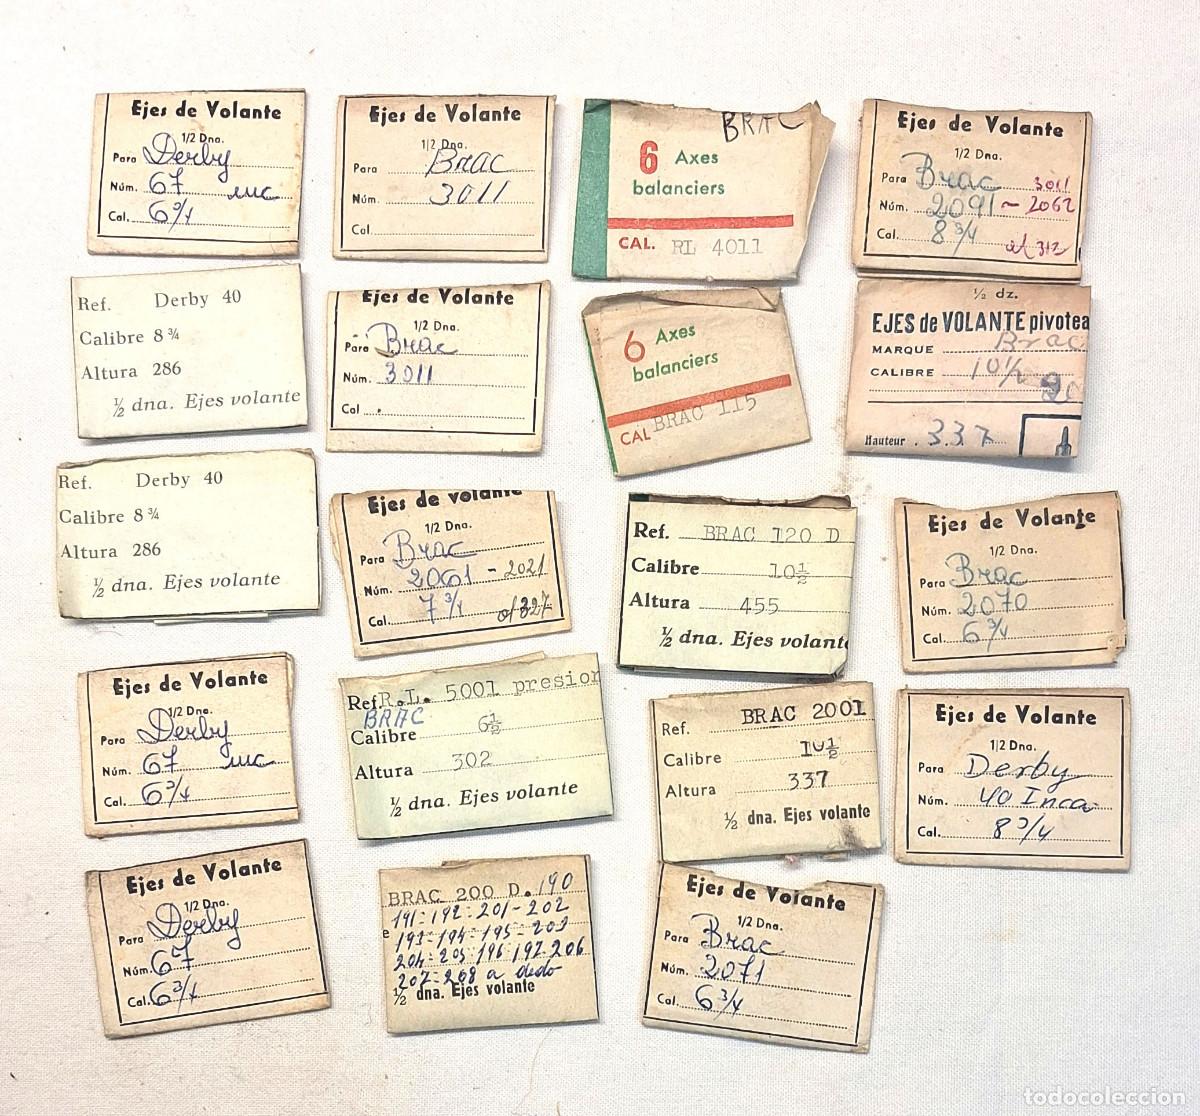 Ejes de Volante
1/2 Dna.
Para Derby
Núm. 67 inc
Cal. 6 3/4
Ejes de Volante
1/2 Dna.
Para Brac
Núm. 3011
Cal.
BRAC
6 Axes
balanciers
CAL. RL 4011
Ejes de Volante
1/2 Dna.
Para Brac 3011
Núm. 2091 - 2062
Cal. 8 3/4 al 312
Ref. Derby 40
Calibre 8 ¾
Altura 286
½ dna. Ejes volante
Ejes de Volante
1/2 Dna.
Para Brac
Núm. 3011
Cal.
6 Axes
balanciers
CAL BRAC 115
½ dz.
EJES de VOLANTE pivotea
MARQUE Brac
CALIBRE 10½
Hauteur . 337
Ref. Derby 40
Calibre 8 ¾
Altura 286
½ dna. Ejes volante
Ejes de volante
1/2 Dna.
Para Brac
Núm. 2061 - 2021
Cal. 7 3/4 al 327
Ref. BRAC 120 D
Calibre 10½
Altura 455
½ dna. Ejes volante
Ejes de Volante
1/2 Dna.
Para Brac
Núm. 2070
Cal. 6 3/4
Ejes de Volante
1/2 Dna.
Para Derby
Núm. 67 inc
Cal. 6 3/4
Ref R.L. 5001 presion
BRAC
Calibre 6½
Altura 302
½ dna. Ejes volante
Ref. BRAC 2001
Calibre 10½
Altura 337
½ dna. Ejes volante
Ejes de Volante
1/2 Dna.
Para Derby
Núm. 40 Inca
Cal. 8 3/4
Ejes de Volante
1/2 Dna.
Para Derby
Núm. 67
Cal. 6 3/4
BRAC 200 D. 190
191-192-201-202
193-194-195-203
204-205-196-197-206
207-208 a dedo
½ dna. Ejes volante
Ejes de Volante
1/2 Dna.
Para Brac
Núm. 2071
Cal. 6 3/4
todocoleccion